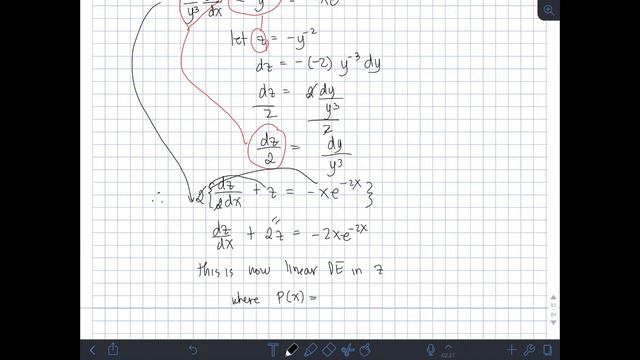 y³ dx y = xe
let z = -y⁻²
dz = -(-2) y⁻³ dy
dz/2 = 2dy/y³/2
dz/2 = dy/y³
∴ 2 { dz/2dx + z = -xe⁻²ˣ }
dz/dx + 2z = -2xe⁻²ˣ
this is now linear DE in z
where P(x) =